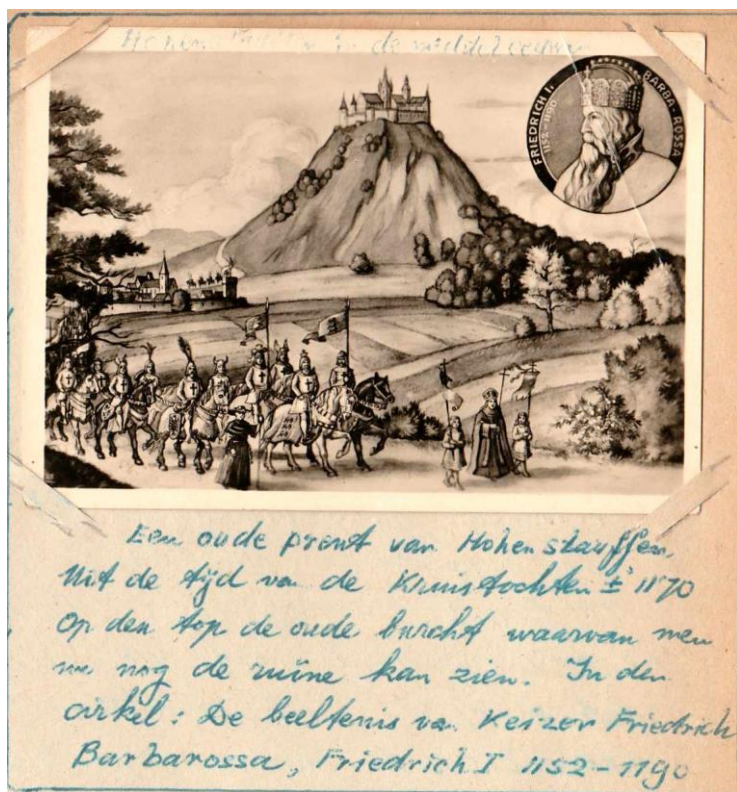 Hohenstauffen in de middeleeuwen
FRIEDRICH I. BARBA-ROSSA
1152-1190
Een oude prent van Hohenstauffen.
Uit de tijd van de Kruistochten ± 1170
Op den top de oude burcht waarvan men
nu nog de ruïne kan zien. In den
cirkel: De beeltenis van Keizer Friedrich
Barbarossa, Friedrich I 1152-1190